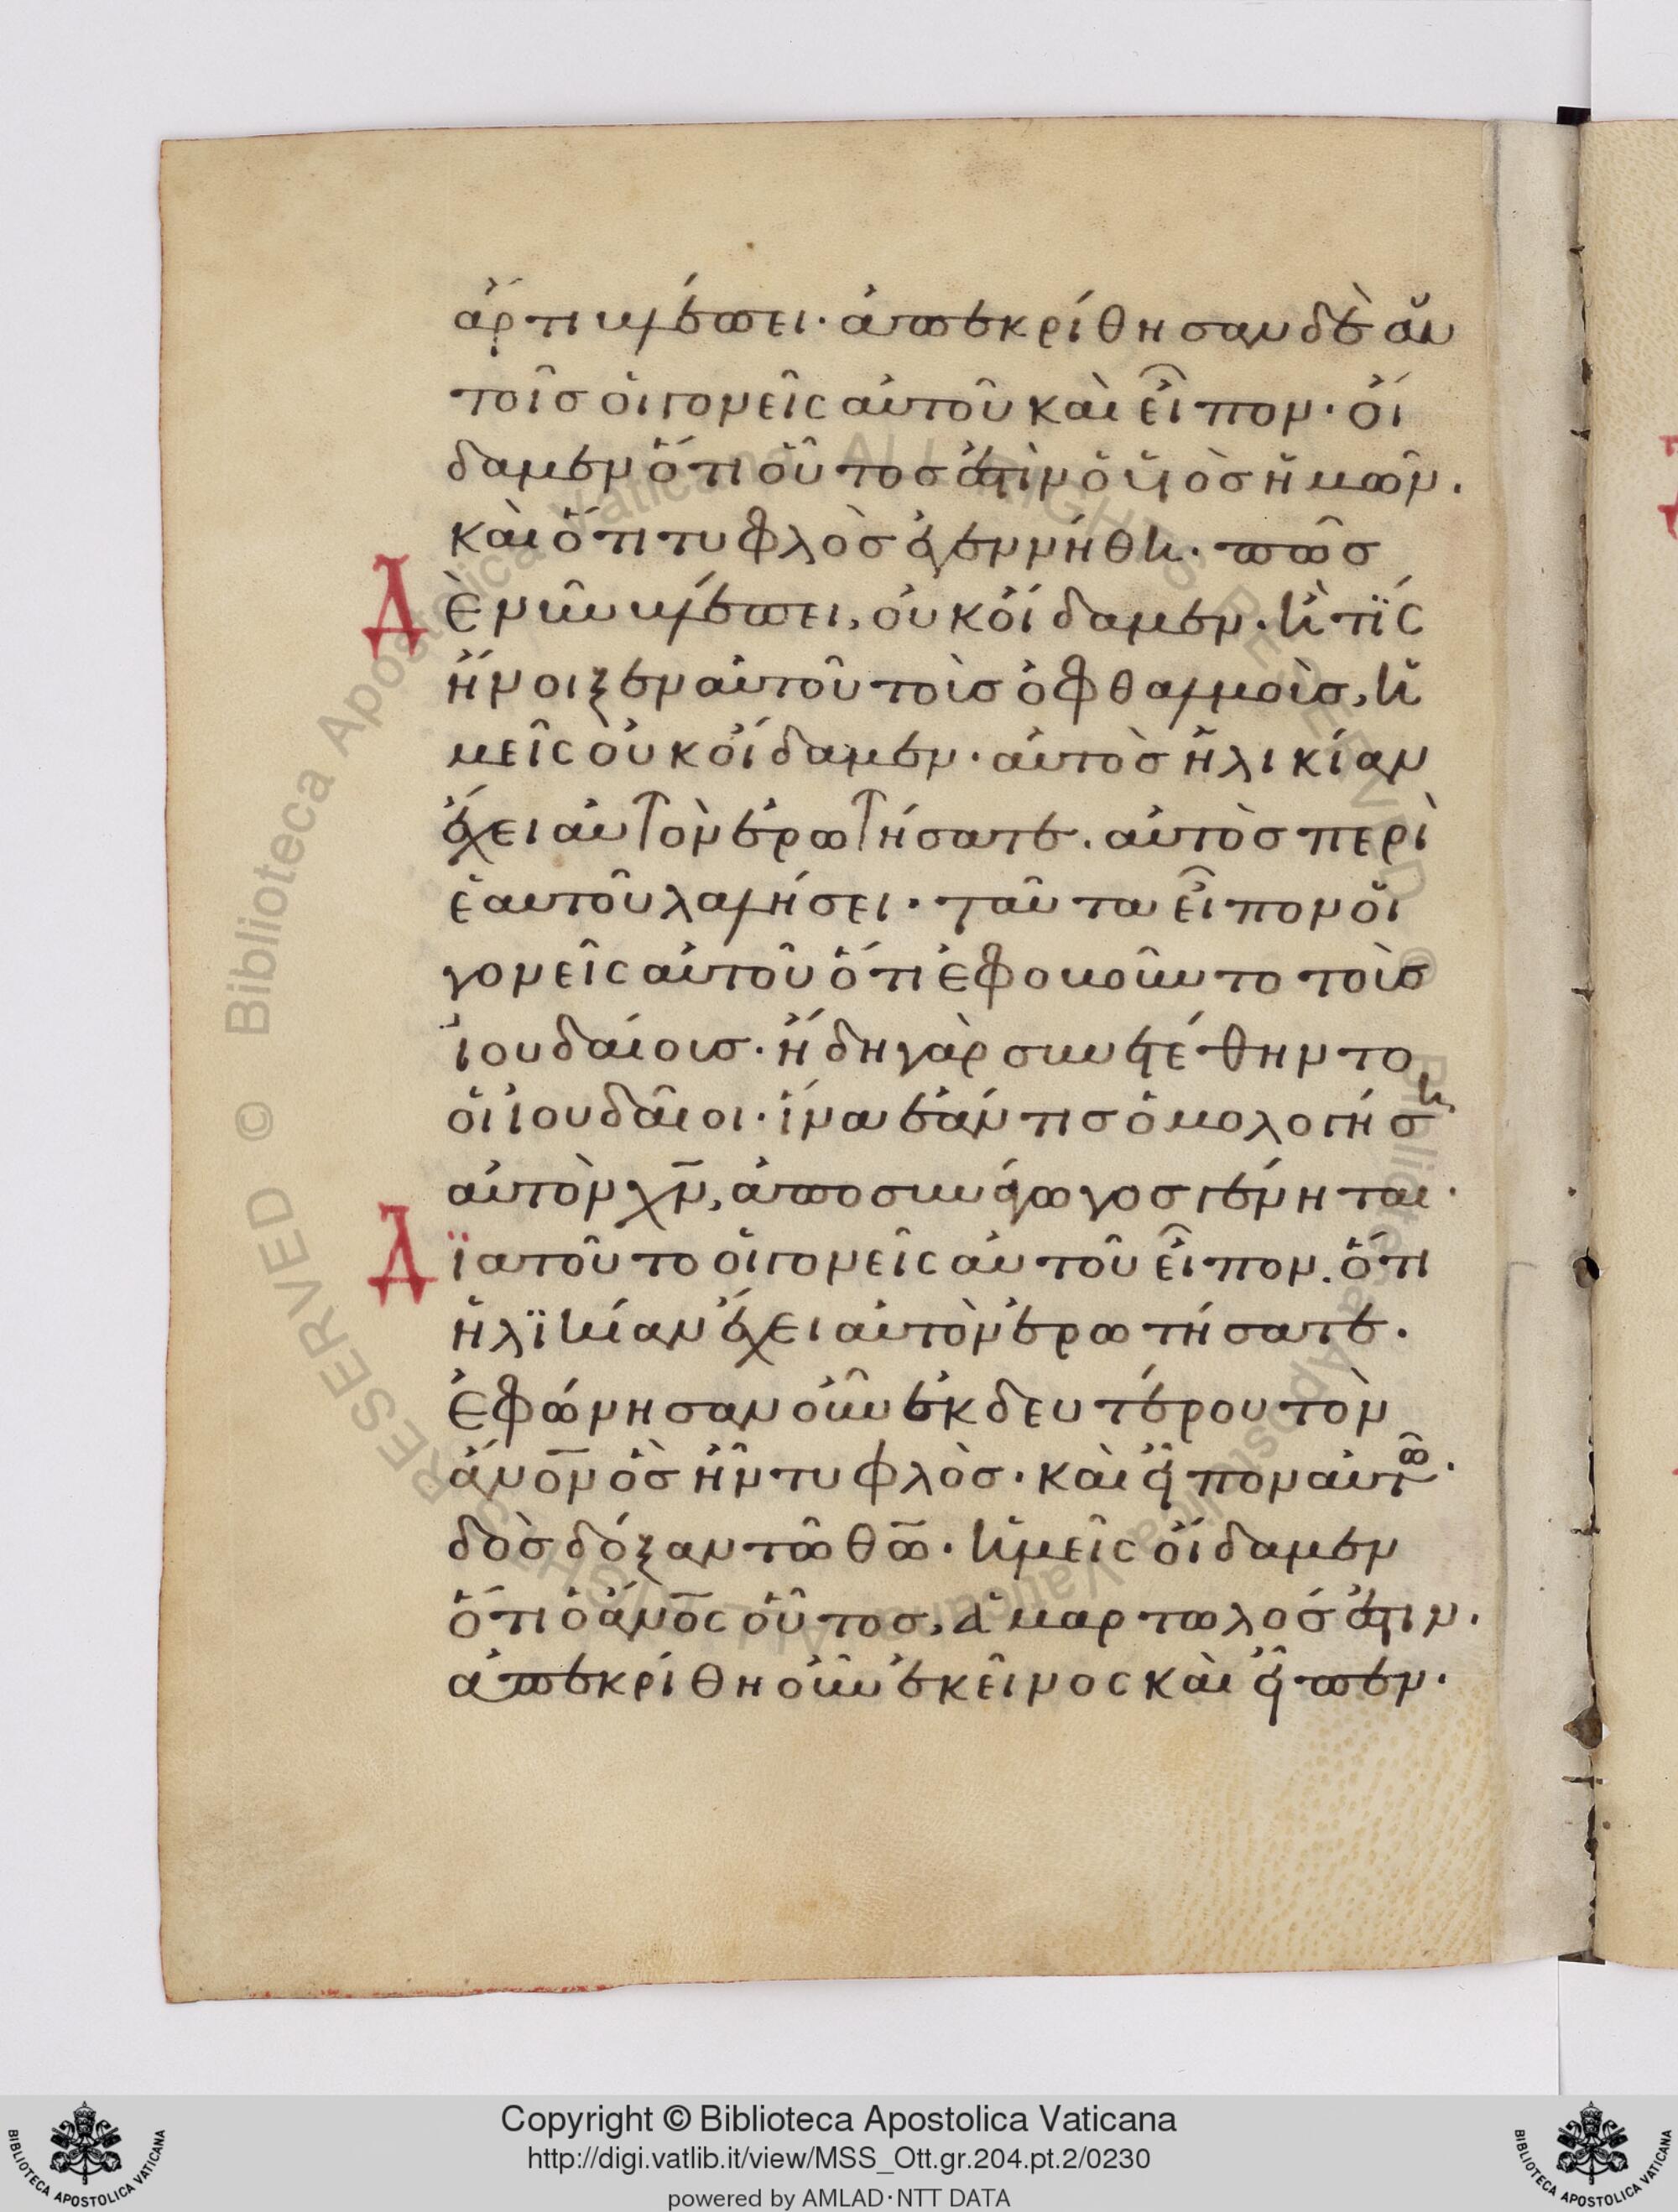 ἄρτι βλέπει· ἀπεκρίθησαν δὲ αὐ
τοῖς οἱ γονεῖς αὐτοῦ καὶ εἶπον· οἴ
δαμεν ὅτι οὗτος ἐστὶν ὁ υἱὸς ἡμῶν.
καὶ ὅτι τυφλὸς ἐγεννήθη· πῶς
Δ Ὲ νῦν βλέπει, οὐκ οἴδαμεν· ἢ τίς
ἤνοιξεν αὐτοῦ τοὺς ὀφθαλμοὺς, ἡ
μεῖς οὐκ οἴδαμεν· αὐτὸς ἡλικίαν
ἔχει αὐτὸν ἐρωτήσατε. αὐτὸς περὶ
ἑαυτοῦ λαλήσει· ταῦτα εἶπον οἱ
γονεῖς αὐτοῦ ὅτι ἐφοβοῦντο τοὺς
ἰουδαίους· ἤδη γὰρ συνετέθηντο
οἱ ἰουδαῖοι· ἵνα ἐάν τις ὁμολογήσῃ
αὐτὸν χ̅ν̅, ἀποσυνάγωγος γένηται·
Δ ϊατοῦτο οἱ γονεῖς αὐτοῦ εἶπον. ὅτι
ἡλϊκίαν ἔχει αὐτὸν ἐρωτήσατε.
ἐφώνησαν οὖν ἐκ δευτέρου τὸν
ἄν̅ο̅ν̅ ὃς ἦν τυφλὸς· καὶ εἶπον αὐτῶ·
δὸς δόξαν τῶ θ̅ω̅· ἡμεῖς οἴδαμεν
ὅτι ὁ ἄν̅ο̅ς̅ οὗτος, ἁμαρτωλός ἐστιν.
ἀπεκρίθη οὖν ἐκεῖνος καὶ εἶπεν·
Copyright © Biblioteca Apostolica Vaticana
http://digi.vatlib.it/view/MSS_Ott.gr.204.pt.2/0230
powered by AMLAD·NTT DATA